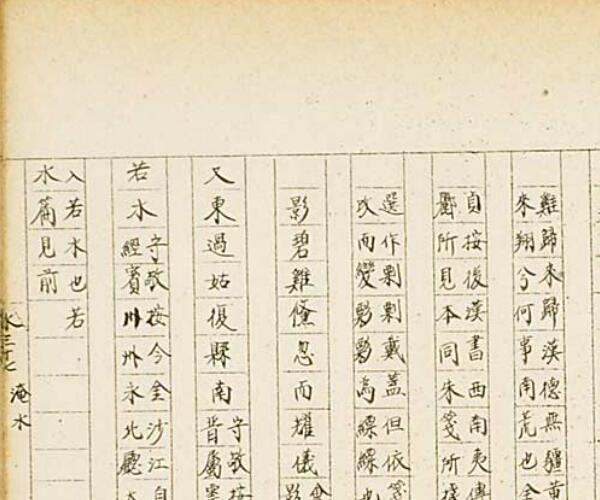 雞歸來歸漢德無疆黄
來翔兮何事南荒也全
貞按後漢書西南夷傳
酈所見本同朱箋所
選作剽剽戴蓋但依箋
改而變彯彯為縹縹也
影碧雞儵忽而耀儀
又東過姑復縣南
守敬按
晉屬雲
若水
守敬按今金沙江自
經賓川州永北廳
入若水也若
水篇見前
水三十七 淹水